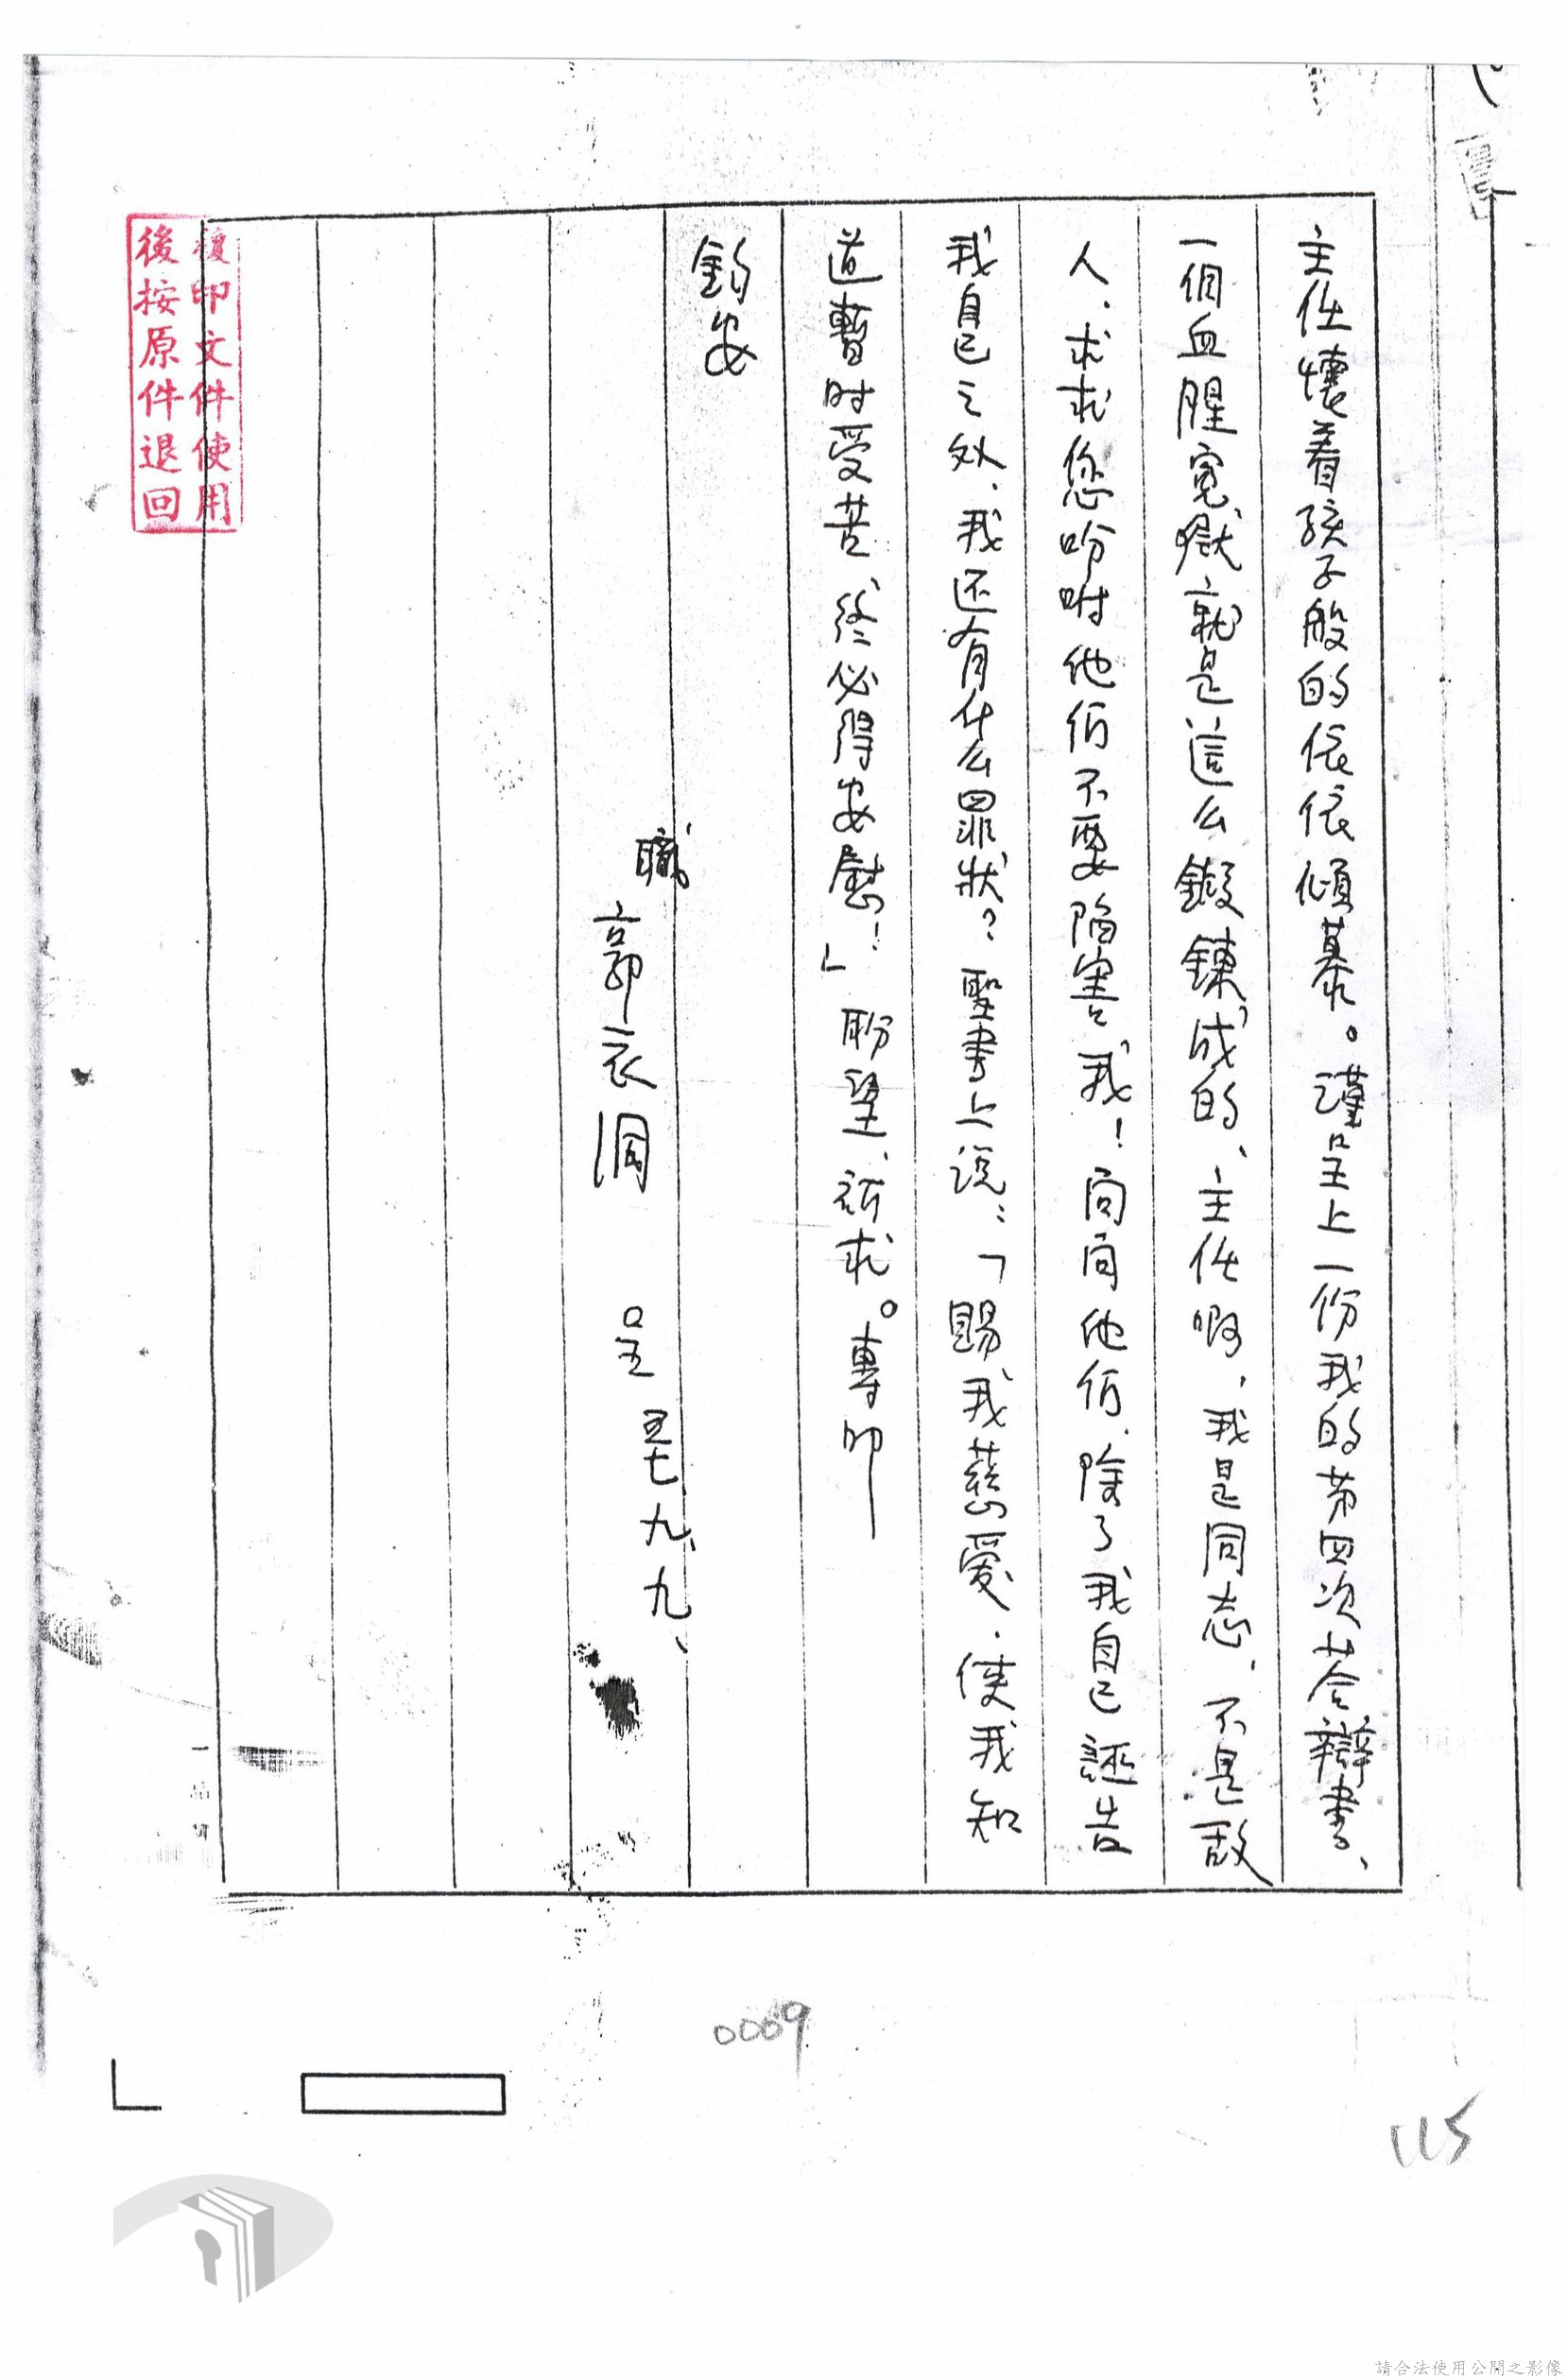 主任懷着孩子般的依依傾慕。謹呈上一份我的第四次荅辯書、
一個血腥寃獄就是這么鍛鍊成的、主任啊、我是同志、不是敌
人、求求您吩咐他们不要陷害我！问问他们、除了我自己誣告
我自己之外、我还有什么罪狀？聖書上说：「賜我慈爱、使我知
道暫时受苦、終必得安慰！」盼望、祈求。專叩
鈞安
職
郭衣洞 呈
五七、九、九、
複印文件使用
後按原件退回
0009
115
請合法使用公開之影像